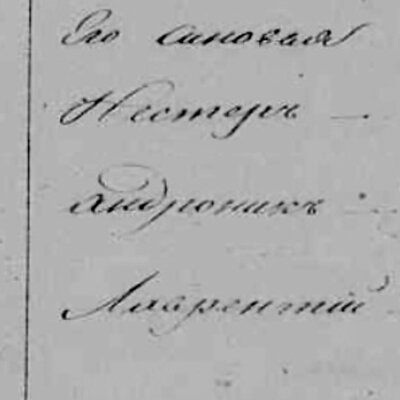 Его сыновья
Нестеръ
Андроникъ
Лаврентій